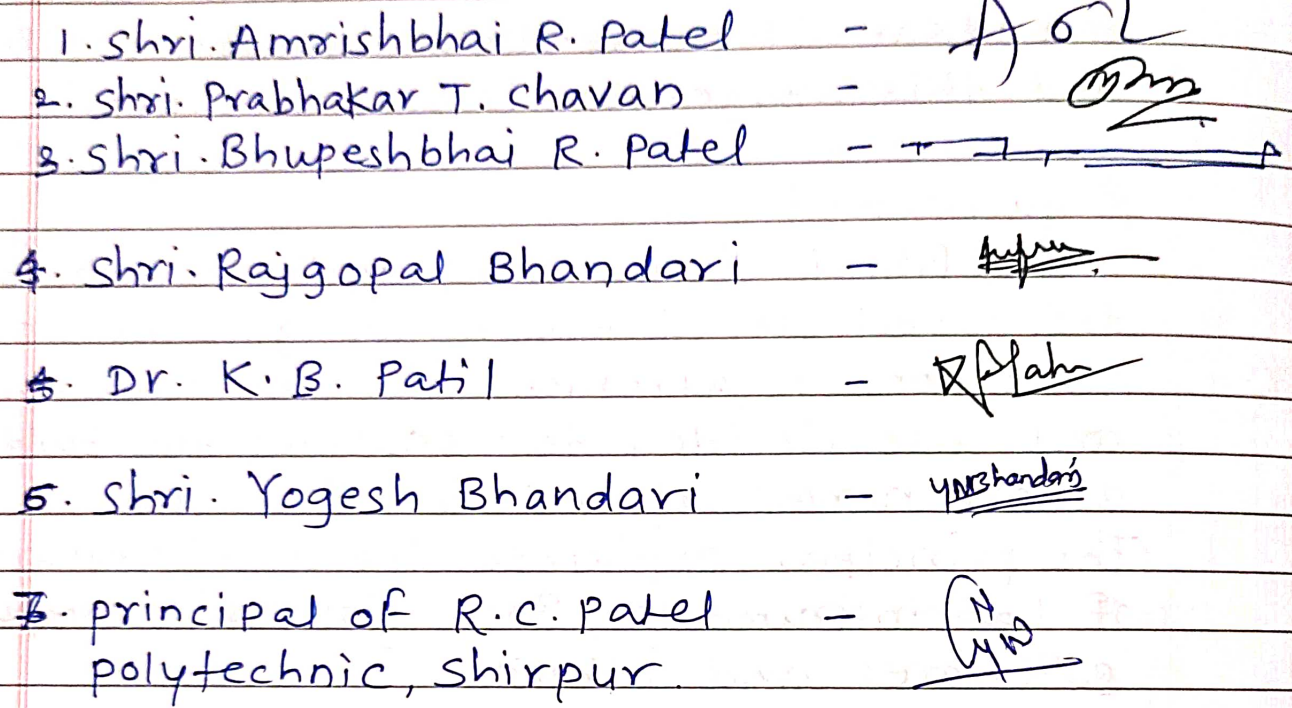 1. Shri. Amrishbhai R. Patel -
2. Shri. Prabhakar T. Chavan -
3. Shri. Bhupeshbhai R. Patel -
4. Shri. Rajgopal Bhandari -
5. Dr. K. B. Patil -
6. Shri. Yogesh Bhandari - YNBhandari
7. principal of R.C. Patel -
polytechnic, Shirpur.